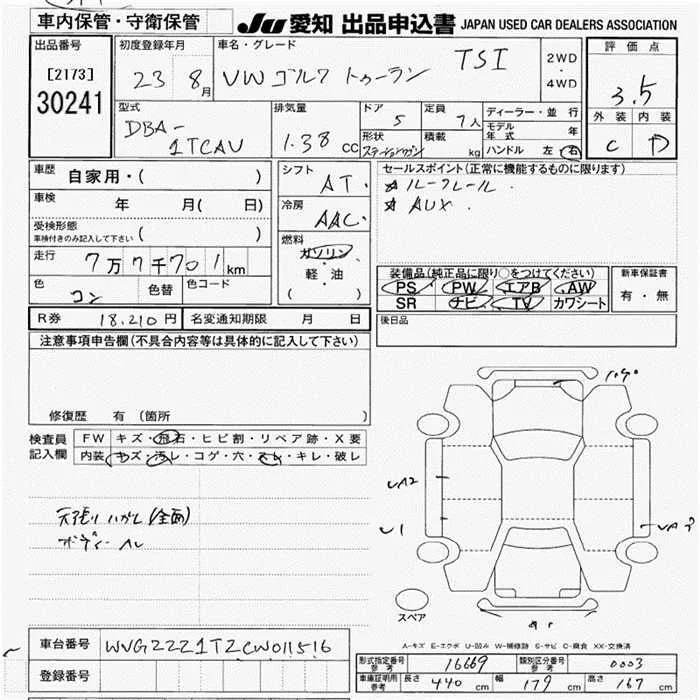 車内保管・守衛保管
JU 愛知 出品申込書 JAPAN USED CAR DEALERS ASSOCIATION
出品番号
[2173]
30241
初度登録年月
23 8月
車名・グレード
VW ゴルフ トゥーラン TSI
2WD
・
4WD
評価点
3.5
外装 内装
C D
型式
DBA-
1TCAV
排気量
1.38 cc
ドア
5
定員
7人
形状
ステーションワゴン
積載
kg
ディーラー・並 行
モデル年式 年
ハンドル 左・右
車歴 自家用・( )
車検 年 月( 日)
受検形態
車検付きのみ記入して下さい ( )
走行 7万7千701km
色 コン 色替 色コード
シフト
AT
冷房
AAC
燃料
ガソリン
・
軽・油
( )
セールスポイント(正常に機能するものに限ります)
★ ルーフレール
★ AUX
装備品(純正品に限り○をつけてください)
PS PW エアB AW
SR ナビ TV カワシート
新車保証書
有・無
後日品
R券 18,210円 名変通知期限 月 日
注意事項申告欄(不具合内容等は具体的に記入して下さい)
修復歴 有 (箇所 )
検査員
記入欄
FW キズ・飛石・ヒビ割・リペア跡・X要
内装 キズ・汚レ・コゲ・穴・スレ・キレ・破レ
天張りハガレ(全面)
UA2
U1
スペア
A-キズ E-エクボ U-凹み W-補修跡 S-サビ C-腐食 XX-交換済
車台番号 WVGZZZ1TZCW011516
登録番号
形式指定番号
参考
16669
類別区分番号
参考
0003
車庫証明用
参考
長さ 440 cm 幅 179 cm 高さ 167 cm